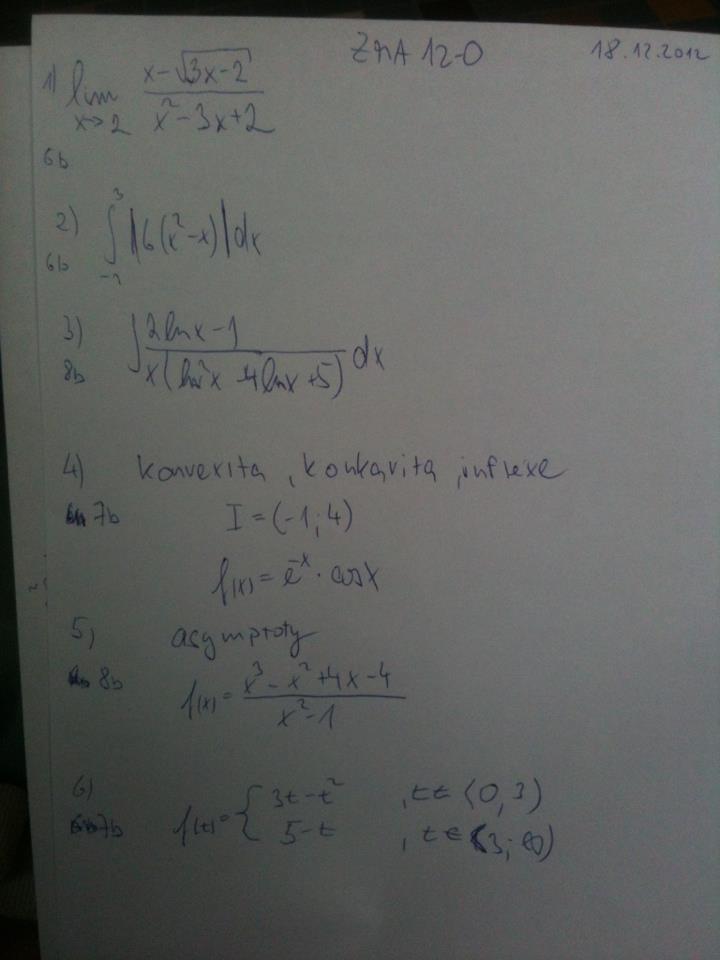 ZMA 12-O 18.12.2012
1) lim x→2 (x-√(3x-2))/(x²-3x+2)
6b
2) ∫₋₁³ |6(x²-x)|dx
6b
3) ∫ (2lnx-1)/(x(ln²x-4lnx+5)) dx
8b
4) konvexita, konkávita, inflexe
7b I=(-1;4)
f(x)=e⁻ˣ·cosx
5, asymptoty
8b f(x)=(x³-x²+4x-4)/(x²-1)
6)
7b f(t)={ 3t-t² , t∈⟨0,3)
5-t , t∈⟨3;∞)